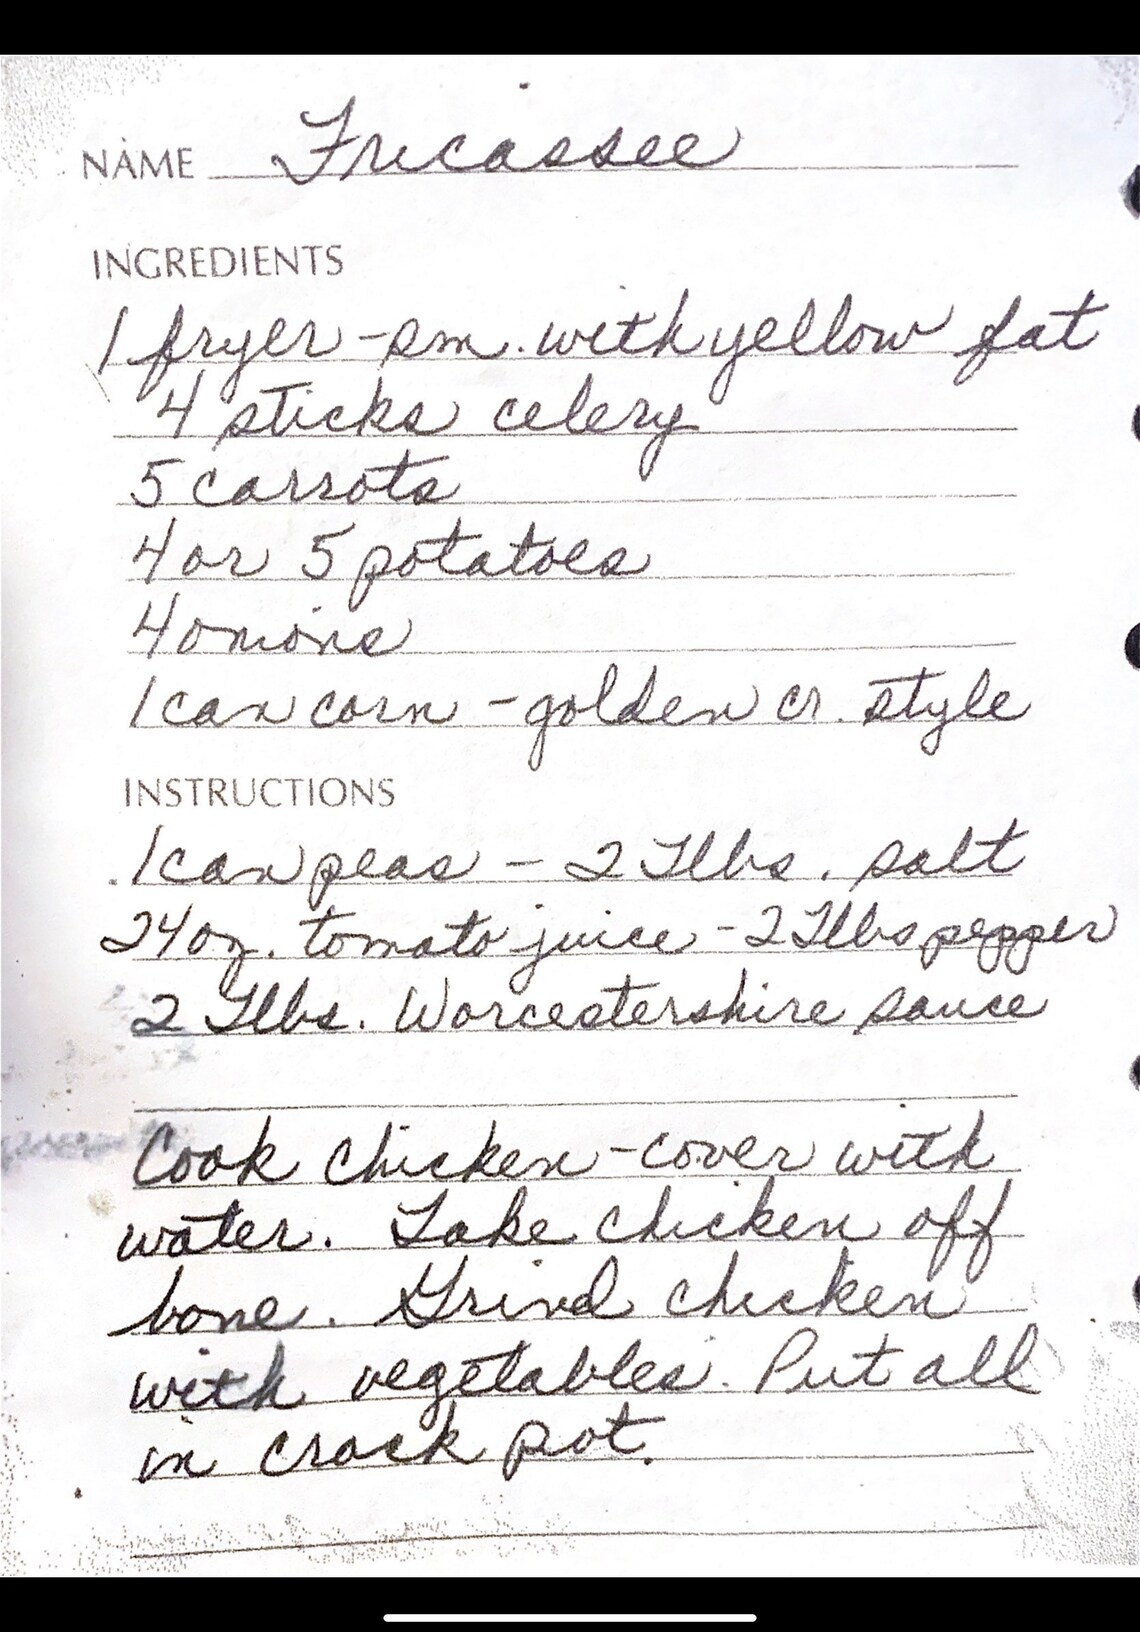 NAME Fricassee
INGREDIENTS
1 fryer - sm. with yellow fat
4 sticks celery
5 carrots
4 or 5 potatoes
4 onions
1 can corn - golden cr. style
INSTRUCTIONS
1 can peas - 2 Tlbs. salt
24 oz. tomato juice - 2 Tlbs pepper
2 Tlbs. Worcestershire sauce
Cook chicken - cover with
water. Take chicken off
bone. Grind chicken
with vegetables. Put all
in crock pot.